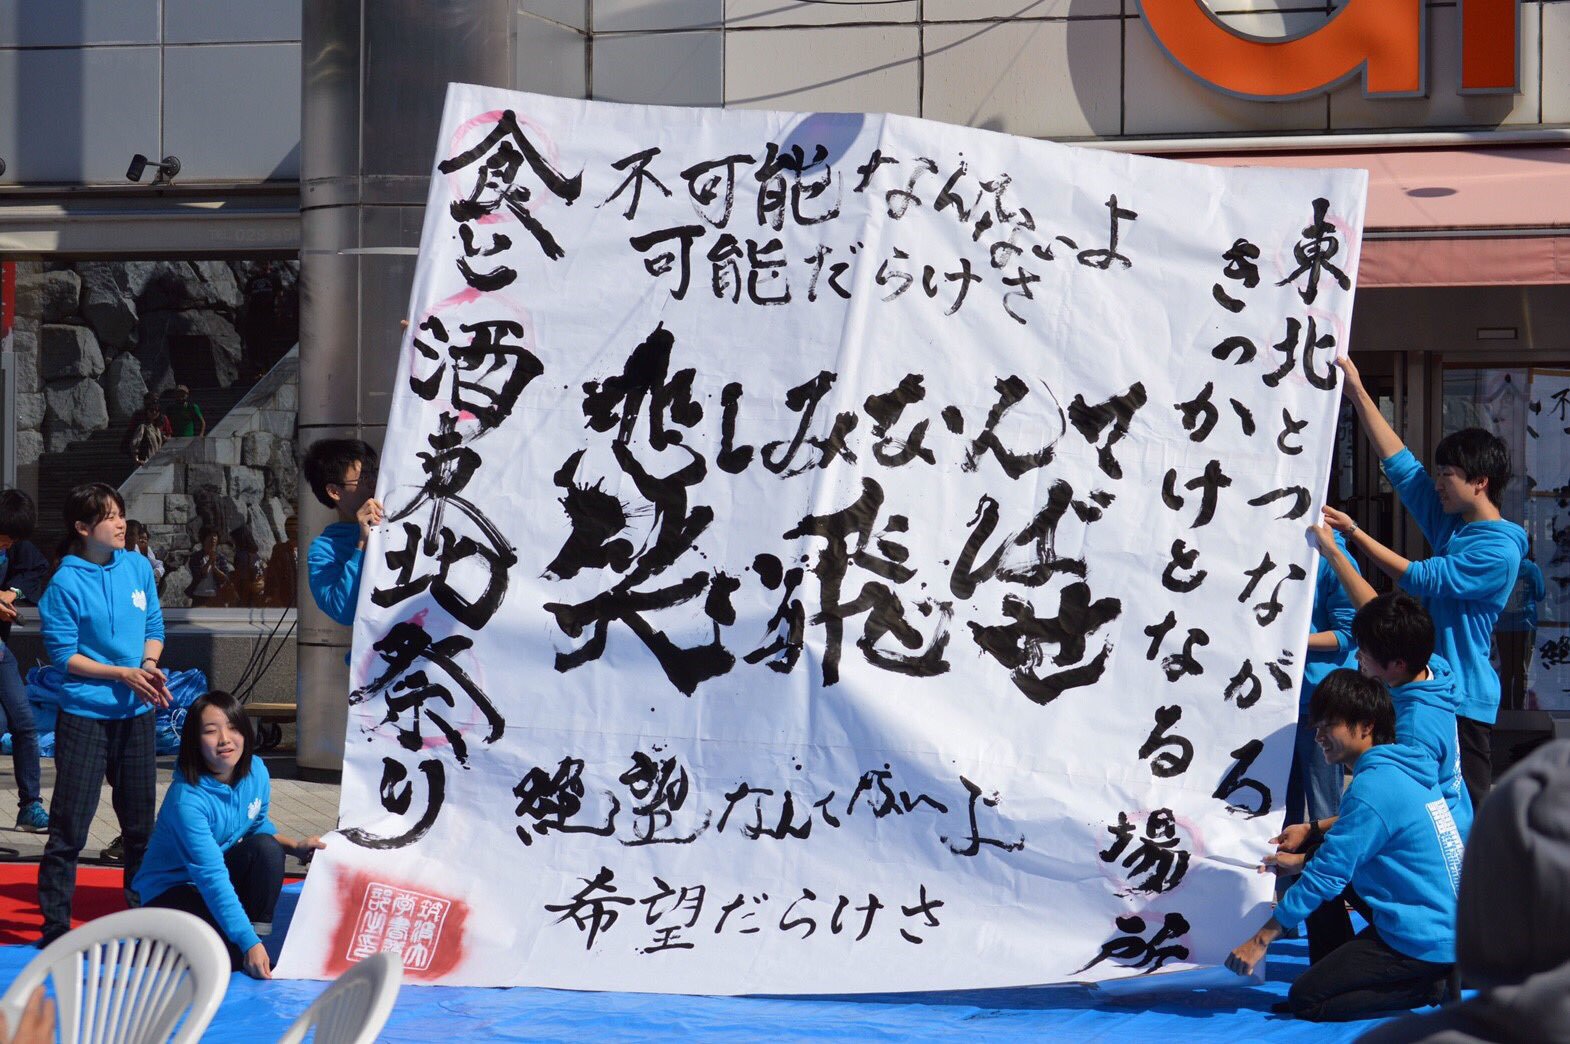 東北とつながる
きっかけとなる
場所
不可能なんてないよ
可能だらけさ
悲しみなんて
笑い飛ばせ
絶望なんて無いよ
希望だらけさ
食と酒東北祭り
筑波大
学書道
部之印